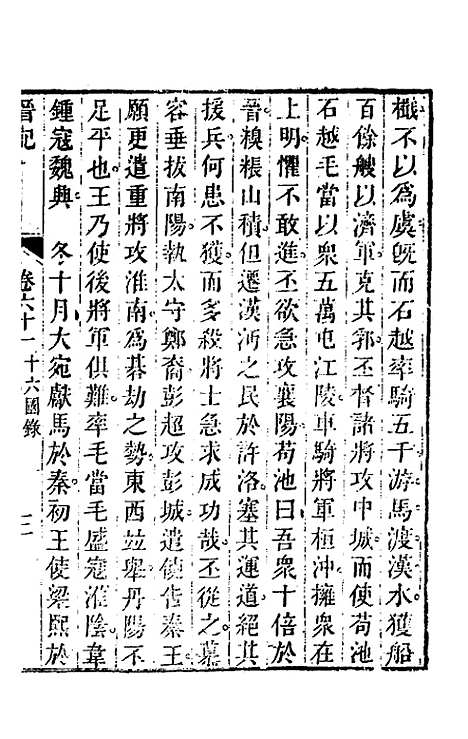 檝不以爲虞旣而石越率騎五千游馬渡漢水獲船
百餘艘以濟軍克其郛丕督諸將攻中城而使苟池
石越毛當以衆五萬屯江陵車騎將軍桓沖擁衆在
上明懼不敢進丕欲急攻襄陽苟池曰吾衆十倍於
晉糗粻山積但遷漢沔之民於許洛塞其運道絕其
援兵何患不獲而多殺將士急求成功哉丕從之慕
容垂拔南陽執太守鄭裔彭超攻彭城遣使告秦王
願更遣重將攻淮南爲棊劫之勢東西竝舉丹陽不
足平也王乃使後將軍俱難率毛當毛盛寇淮陰韋
鍾寇魏興 冬十月大宛獻馬於秦初王使梁熙於
晉記 卷六十一 十六國錄 二